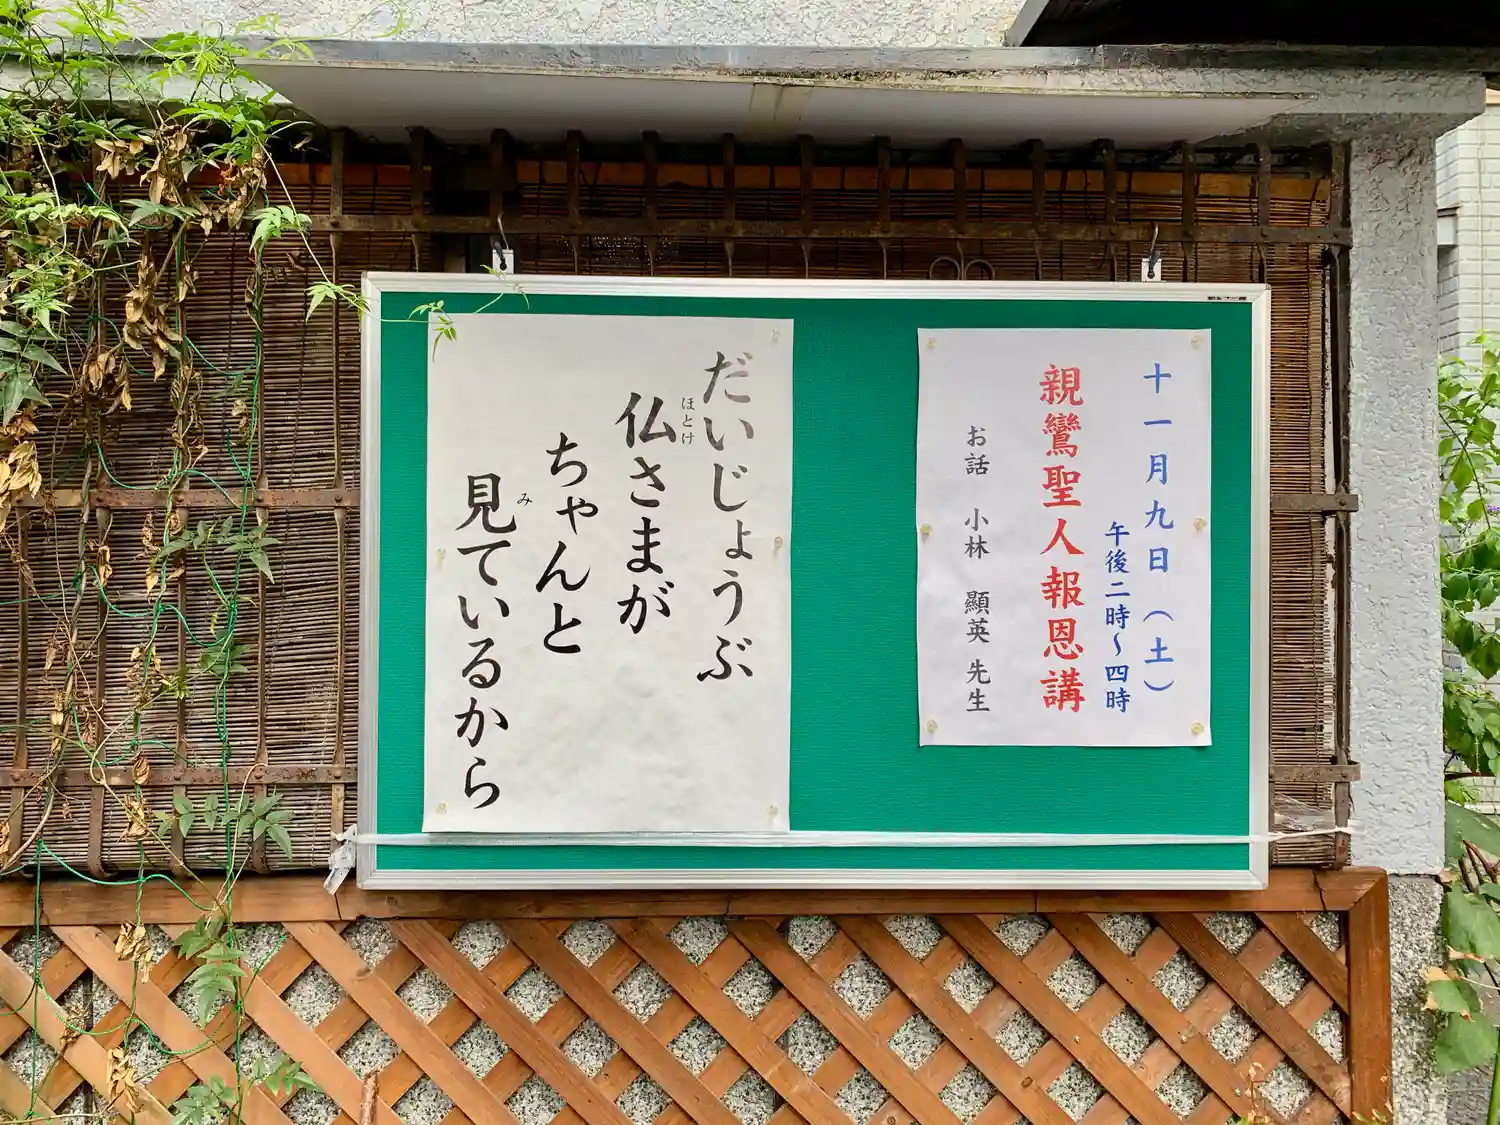 十一月九日（土）
午後二時～四時
親鸞聖人報恩講
お話　小林　顯英 先生
だいじょうぶ
仏さまが
ほとけ
ちゃんと
見ているから
み